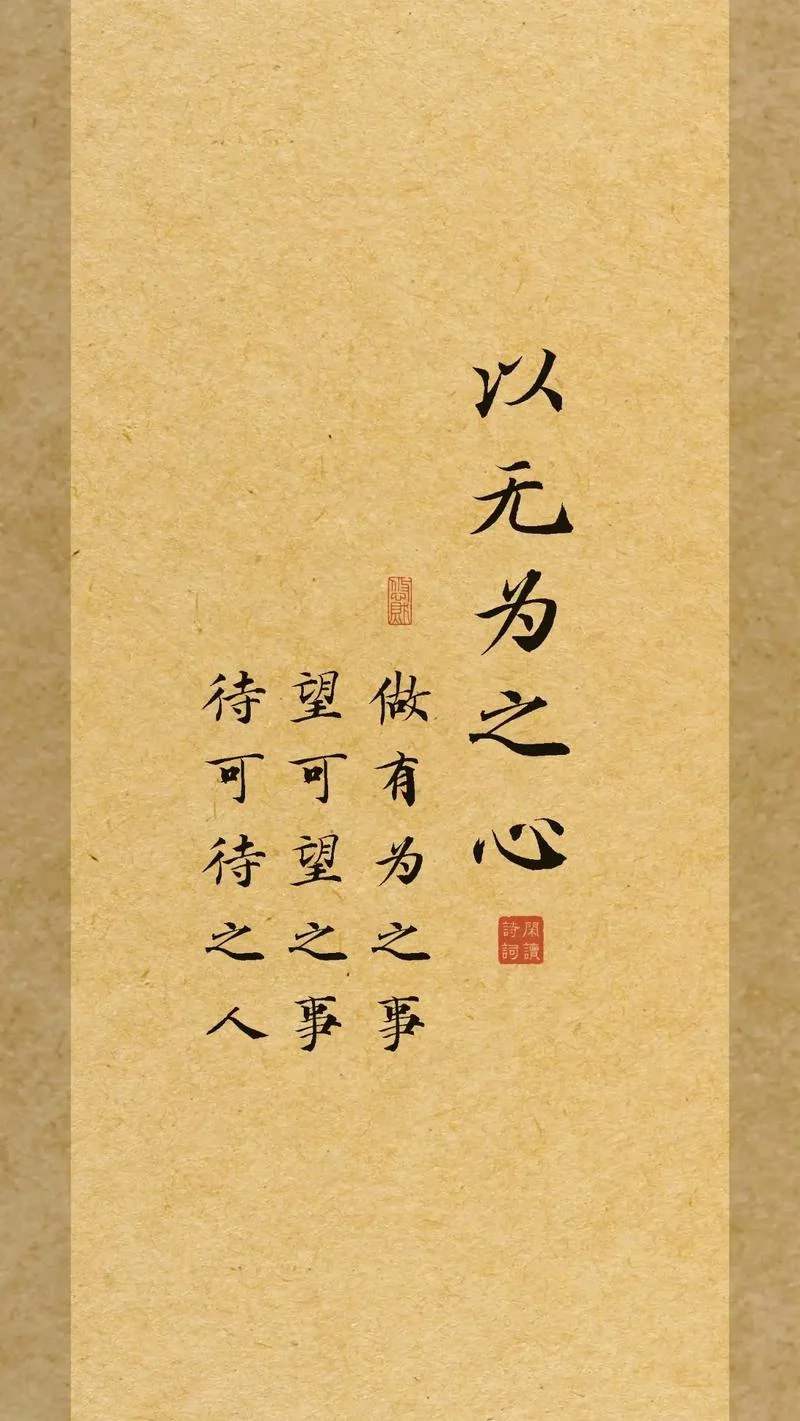 以无为之心
閑讀
詩詞
做有为之事
望可望之事
待可待之人